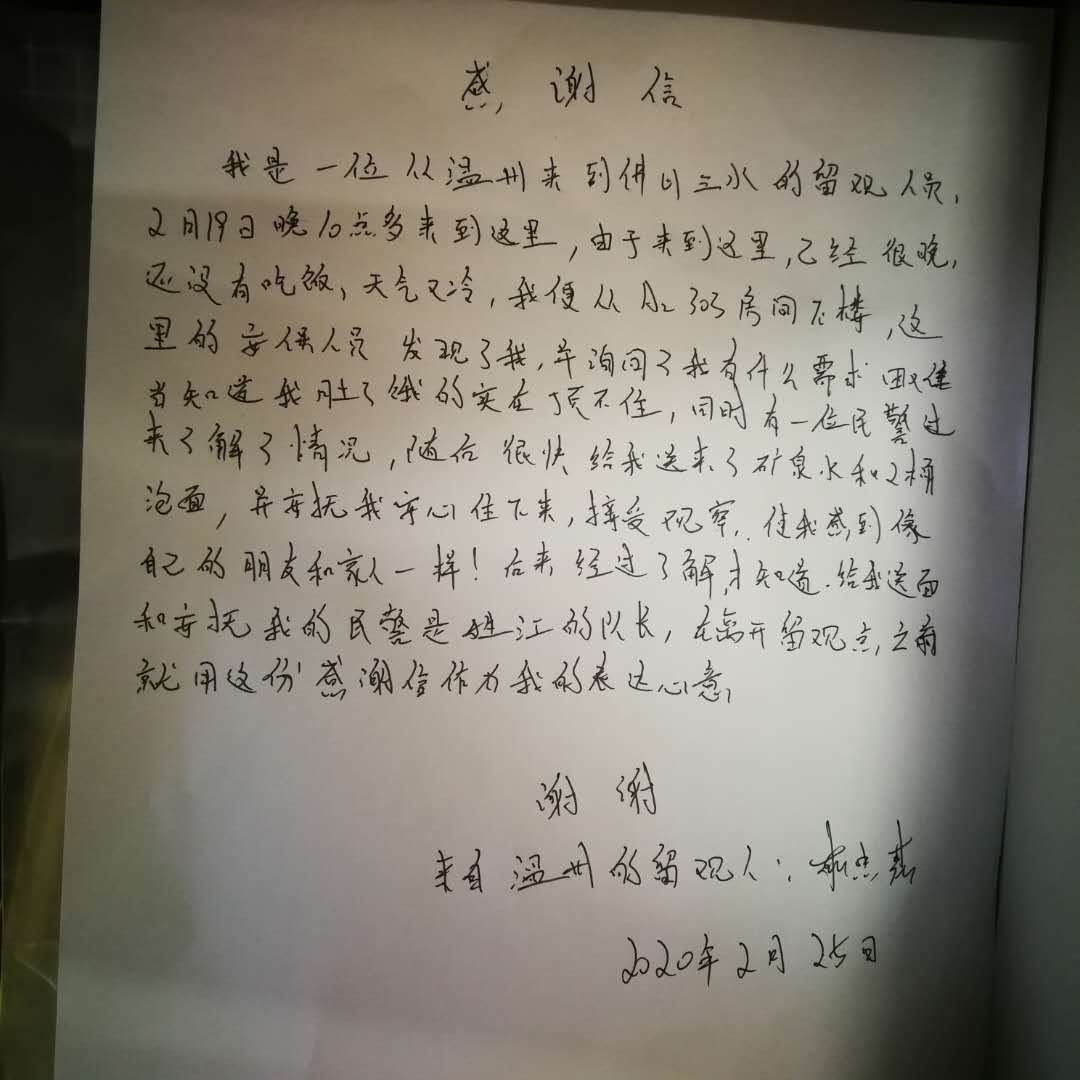 感谢信
我是一位从温州来到佛山三水的留观人员,
2月19日晚10点多来到这里,由于来到这里,已经很晚,
还没有吃饭、天气又冷,我便从A2 303房间下楼,这
里的安保人员发现了我,并询问了我有什么需求
当知道我肚子饿的实在顶不住,同时有一位民警过
来了解了情况,随后很快给我送来了矿泉水和2桶
泡面,并安抚我安心住下来,接受观察.使我感到像
自己的朋友和家人一样!后来经过了解,才知道.给我送面
和安抚我的民警是 江的队长,在离开留观点之前
就用这份感谢信作为我的表达心意,
谢谢
来自温州的留观人:
2020年2月25日